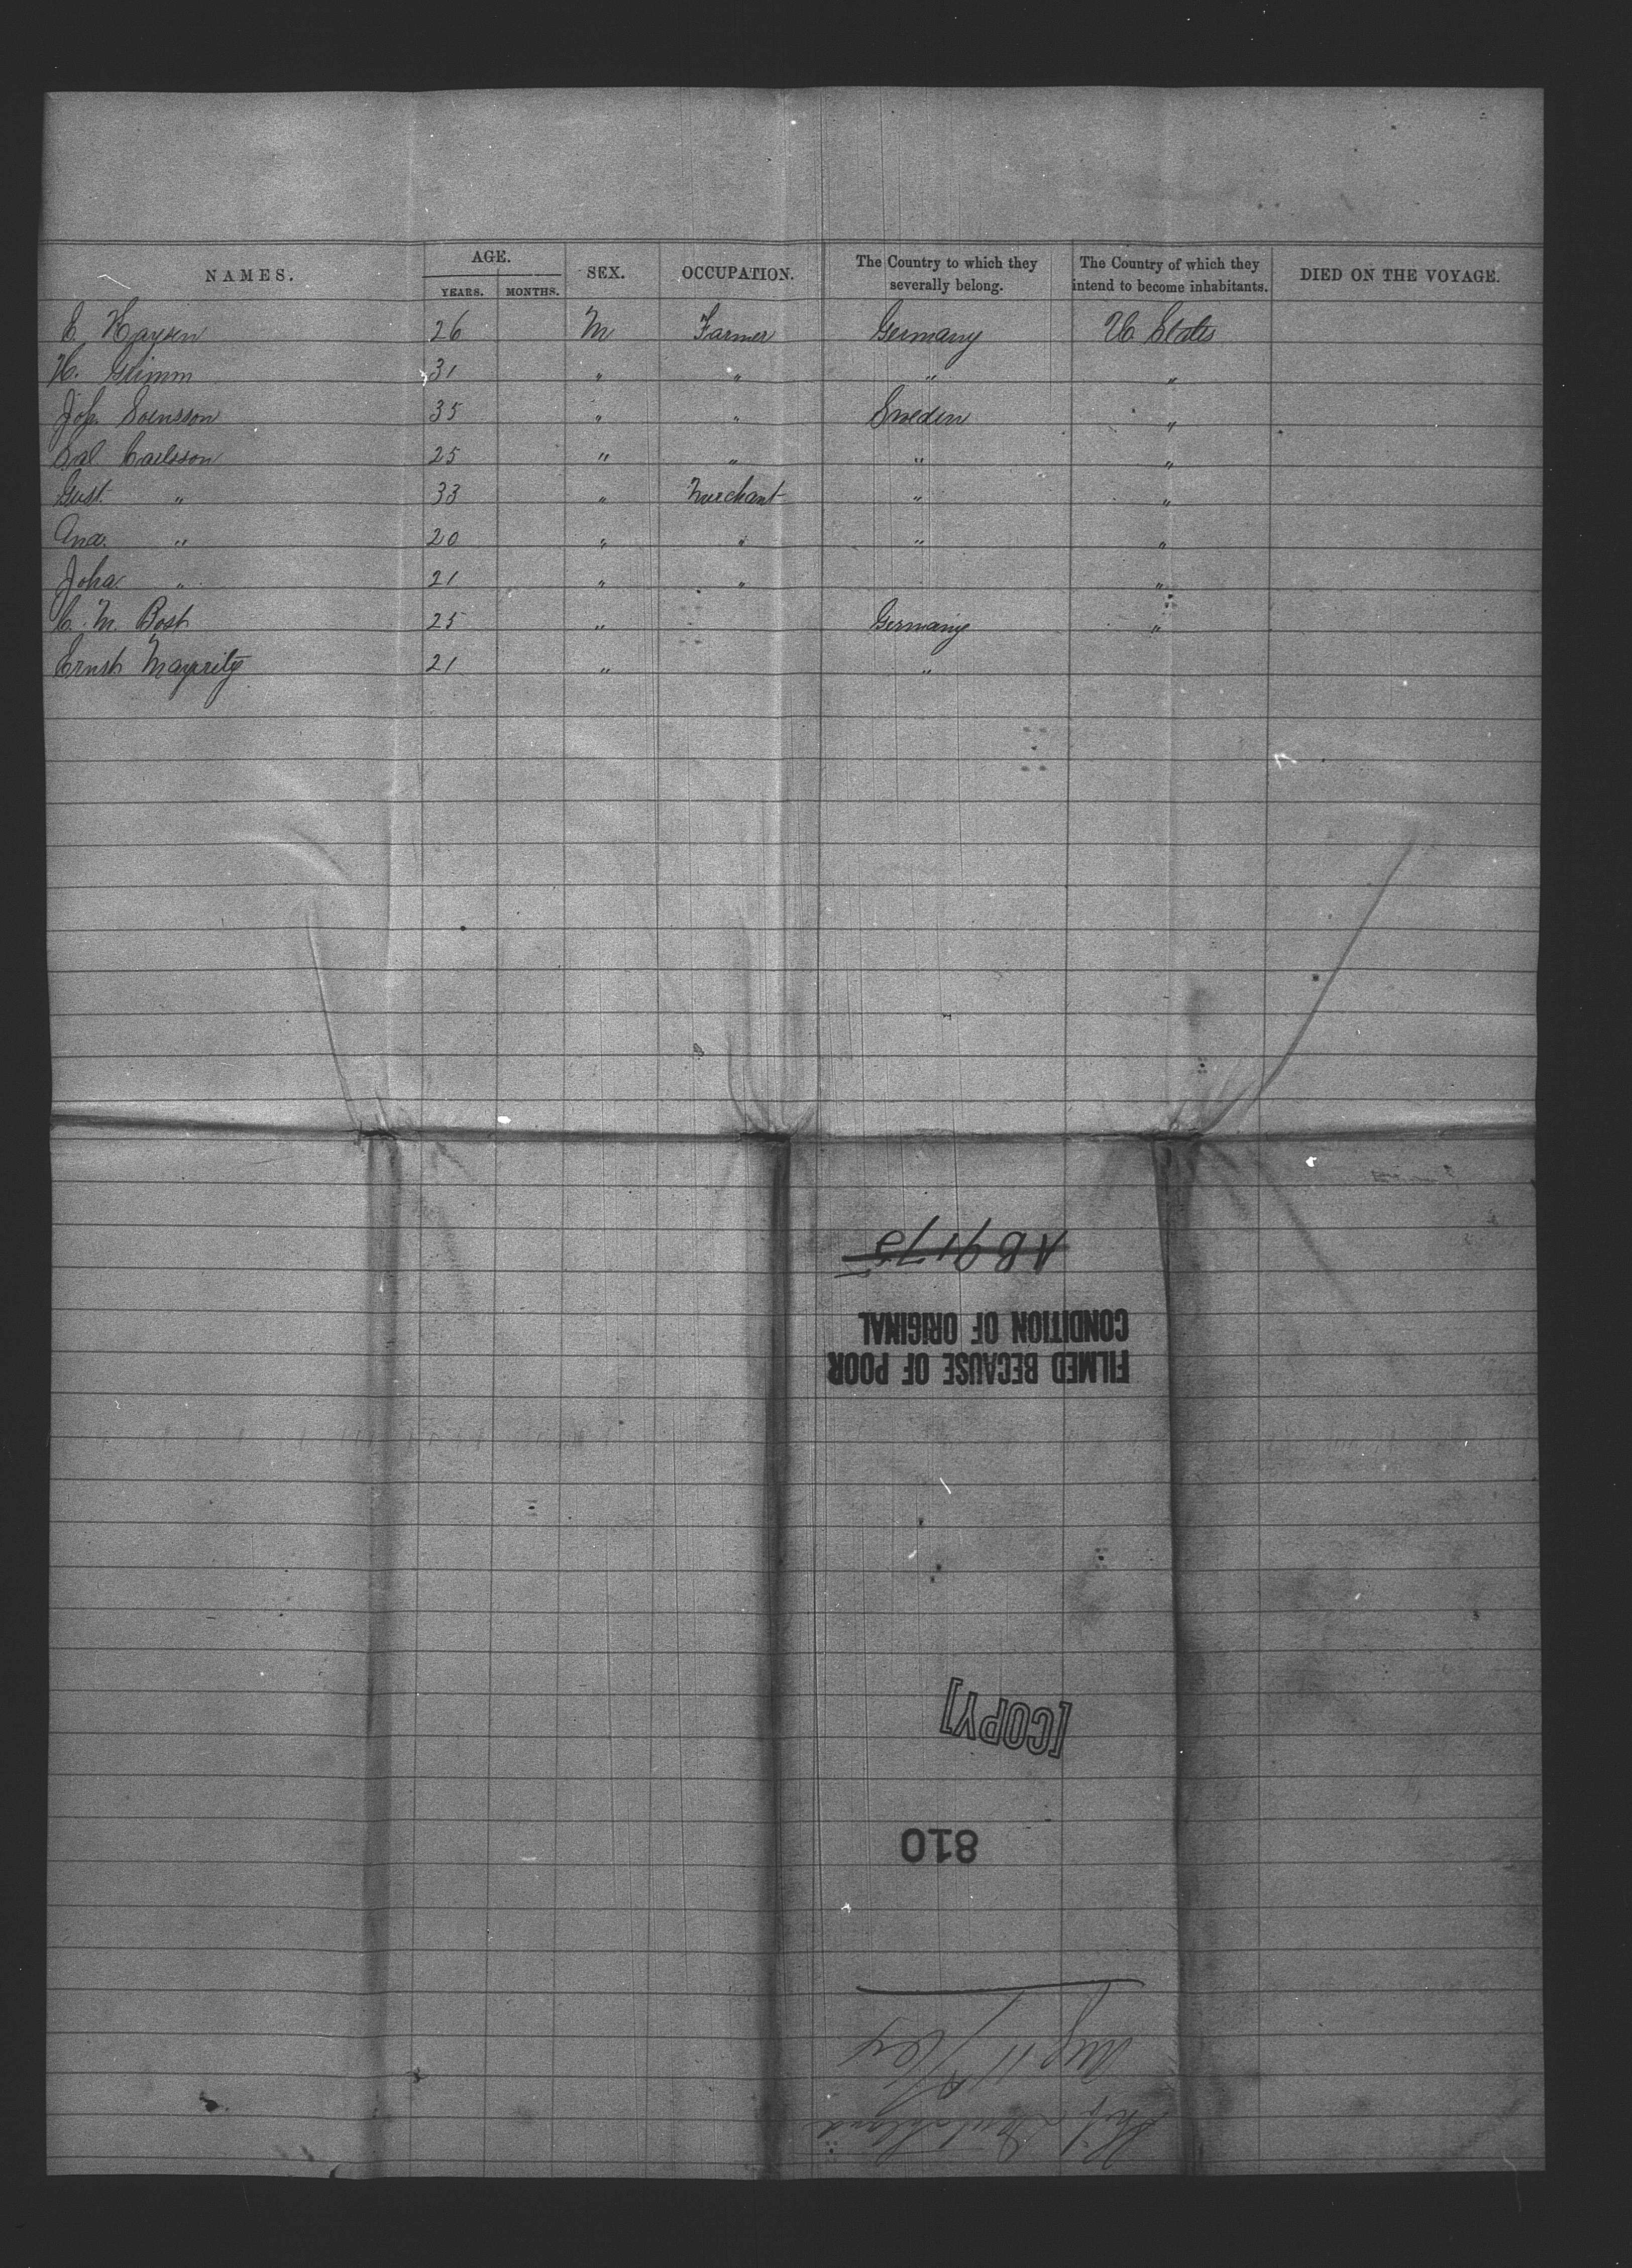 NAMES. AGE. YEARS. MONTHS. SEX. OCCUPATION. The Country to which they severally belong. The Country of which they intend to become inhabitants. DIED ON THE VOYAGE.
E. Haysen 26 M Farmer Germany U. States
H. Grimm 31 " " " "
Joh. Svensson 35 " " Sweden "
Carlsson 25 " " " "
Gust. " 33 " Merchant " "
And. " 20 " " " "
Joha. " 21 " " "
C. M. Bosh 25 " Germany "
Ernst 21 " "
AB 9175
CONDITION OF ORIGINAL
FILMED BECAUSE OF POOR
[COPY]
810
Aug 11
Ship Deutschland